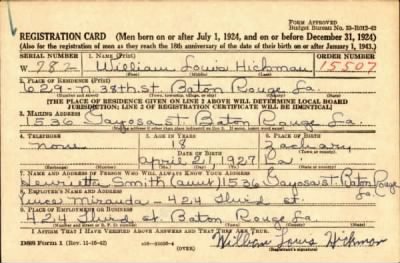 FORM APPROVED
Budget Bureau No. 33-R012-42
REGISTRATION CARD (Men born on or after July 1, 1924, and on or before December 31, 1924)
(Also for the registration of men as they reach the 18th anniversary of the date of their birth on or after January 1, 1943.)
SERIAL NUMBER 1. NAME (Print) ORDER NUMBER
W- 782 William Louis Hickman 15507
(First) (Middle) (Last)
2. PLACE OF RESIDENCE (Print)
629-N. 38th St. Baton Rouge La.
(Number and street) (Town, township, village, or city) (County) (State)
[THE PLACE OF RESIDENCE GIVEN ON LINE 2 ABOVE WILL DETERMINE LOCAL BOARD
JURISDICTION; LINE 2 OF REGISTRATION CERTIFICATE WILL BE IDENTICAL]
3. MAILING ADDRESS
1536 Gayosa St. Baton Rouge La.
[Mailing address if other than place indicated on line 2. If same, insert word same]
4. TELEPHONE 5. AGE IN YEARS 6. PLACE OF BIRTH
none 18 Zachary
DATE OF BIRTH
april 21, 1927 La.
(Exchange) (Number) (Mo.) (Day) (Yr.) (State or country)
7. NAME AND ADDRESS OF PERSON WHO WILL ALWAYS KNOW YOUR ADDRESS
Henrietta Smith (aunt) 1536 Gayosa St. Baton Rouge La.
8. EMPLOYER'S NAME AND ADDRESS
Miranda - 424 Third St.
9. PLACE OF EMPLOYMENT OR BUSINESS
424 Third St. Baton Rouge La.
(Number and street or R. F. D. number) (Town) (County) (State)
I AFFIRM THAT I HAVE VERIFIED ABOVE ANSWERS AND THAT THEY ARE TRUE.
DSS Form 1 (Rev. 11-16-42) (OVER) William Louis Hickman
(Registrant's signature)